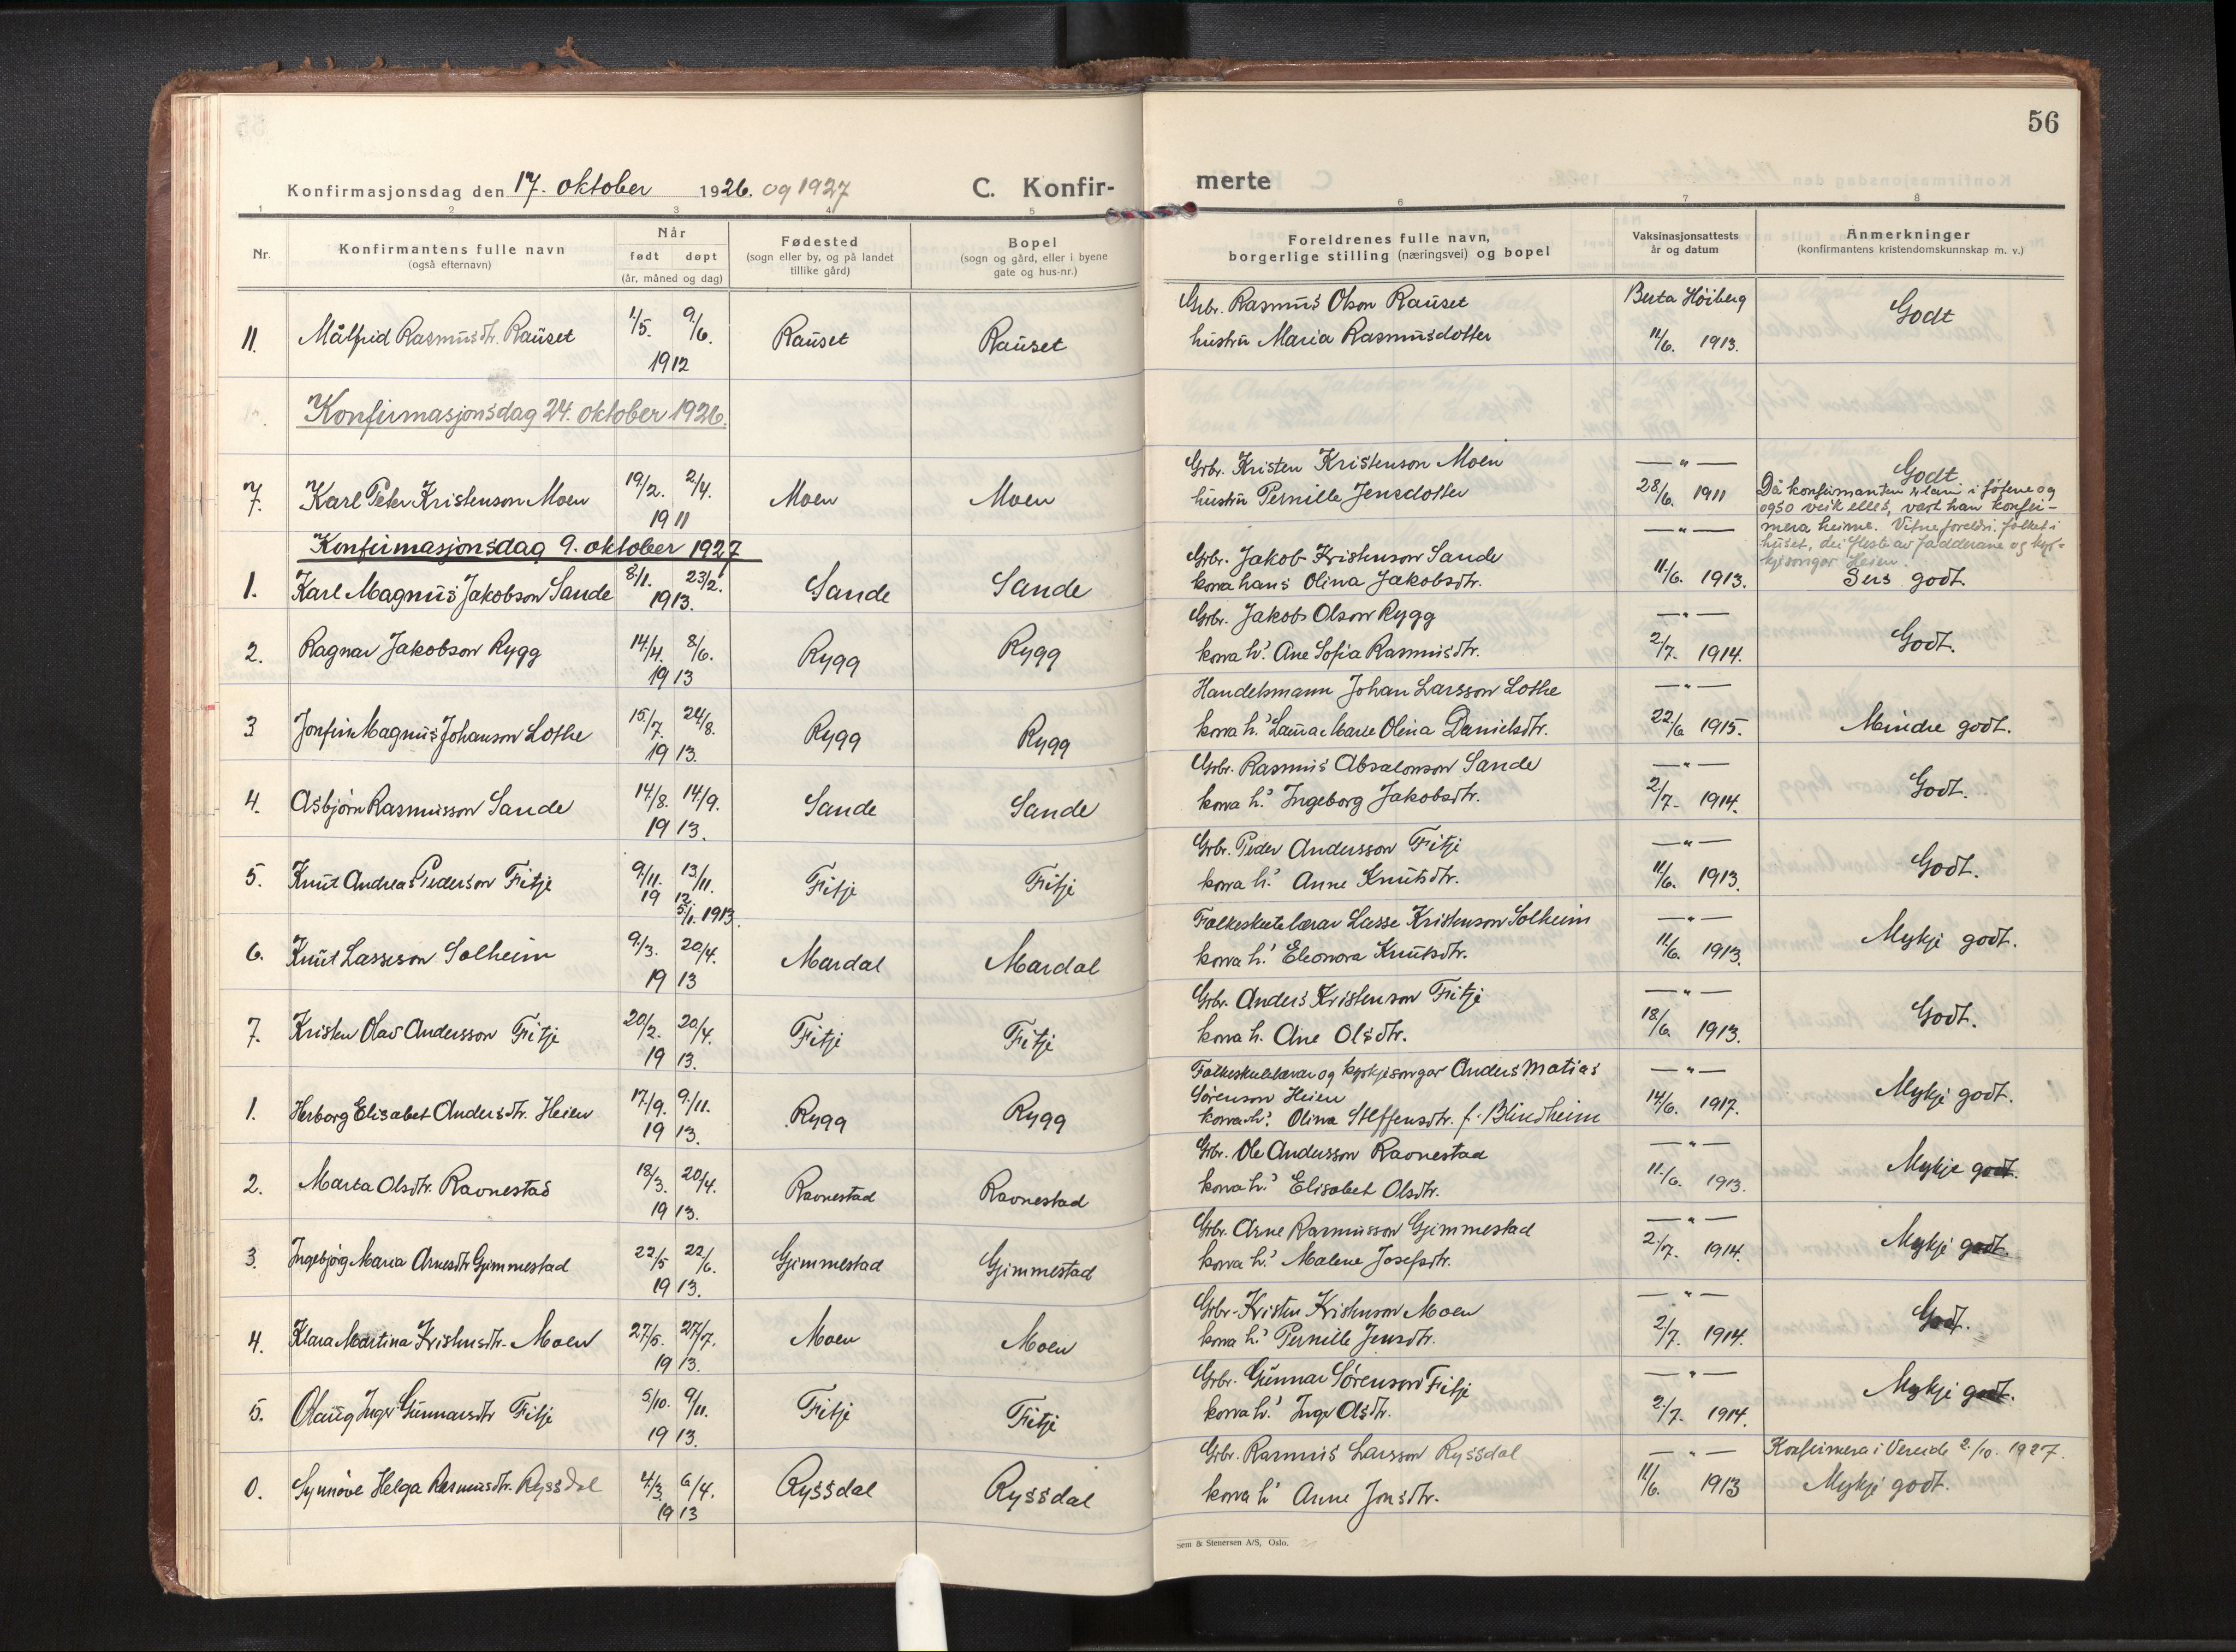 56
Konfirmasjonsdag den 17. oktober 1926. og 1927
C. Konfir-
merte
1 2 3 4 5 6 7 8
Nr.
Konfirmantens fulle navn
(også efternavn)
Når
født døpt
(år, måned og dag)
Fødested
(sogn eller by, og på landet
tillike gård)
Bopel
(sogn og gård, eller i byene
gate og hus-nr.)
Foreldrenes fulle navn,
borgerlige stilling (næringsvei) og bopel
Vaksinasjonsattests
år og datum
Anmerkninger
(konfirmantens kristendomskunnskap m. v.)
Gbr. Rasmus Olson Rauset Berta Höiberg
11. Målfrid Rasmusdtr. Rauset 1/5. 9/6. Rauset Rauset hustru Maria Rasmusdotter 11/6. 1913. Godt
1912
Konfirmasjonsdag 24. oktober 1926.
Gbr. Kristen Kristenson Moen — " —
7. Karl Peter Kristenson Moen 19/2. 2/4. Moen Moen hustru Pernille Jensdotter 28/6. 1911 Godt
1911
Då konfirmanten i föterne og
også veik elles, vart han konfir-
mera heime. Vitne foreldri, folket i
huset, dei fleste av fadderane og kyr-
kjesongar Heien.
Konfirmasjonsdag 9. oktober 1927
Gbr. Jakob Kristenson Sande — " —
1. Karl Magnus Jakobson Sande 8/1. 23/2. Sande Sande kona hans Olina Jakobsdtr. 11/6. 1913. Sers godt.
1913.
Gbr. Jakob Olson Rygg — " —
2. Ragnar Jakobson Rygg 14/4. 8/6. Rygg Rygg kona h.' Ane Sofia Rasmusdtr. 2/7. 1914. Godt.
1913
Handelsmann Johan Larsson Lothe — " —
3 Jonfinn Magnus Johanson Lothe 15/7. 24/8. Rygg Rygg kona h.' Laura Marie Olina Danielsdtr. 22/6 1915. Mindre godt.
1913.
Gbr. Rasmus Absalonson Sande — " —
4. Asbjörn Rasmusson Sande 14/8. 14/9. Sande Sande kona h.' Ingeborg Jakobsdtr. 2/7. 1914. Godt.
1913.
Gbr. Peder Andersson Fitje — " —
5. Knut Andreas Pederson Fitje 9/11. 13/11. Fitje Fitje kona h.' Anne Knutsdtr. 11/6. 1913. Godt.
1912.
5/1. 1913.
Folkeskulelærar Lasse Kristenson Solheim — " —
6. Knut Lasseson Solheim 9/3. 20/4. Mardal Mardal kona h.' Eleonora Knutsdtr. 11/6. 1913. Mykje godt.
1913
Gbr. Anders Kristenson Fitje — " —
7. Kristen Olav Andersson Fitje 20/2. 20/4. Fitje Fitje kona h. Ane Olsdtr. 18/6. 1913. Godt.
1913.
Folkeskulelærar og kyrkjesongar Anders Matias — " —
Sörenson Heien
1. Herborg Elisabet Andersdtr. Heien 17/9. 9/11. Rygg Rygg kona h.' Olina Steffensdtr. f. Blindheim 14/6. 1917. Mykje godt.
1913.
Gbr. Ole Andersson Ravnestad — " —
2. Marta Olsdtr. Ravnestad 18/3. 20/4. Ravnestad Ravnestad kona h.' Elisabet Olsdtr. 11/6. 1913. Mykje godt.
1913.
Gbr. Arne Rasmusson Gjimmestad — " —
3. Ingebjörg Maria Arnesdtr Gjimmestad 22/5 22/6. Gjimmestad Gjimmestad kona h.' Malene Josefsdtr. 2/7. 1914. Mykje godt.
1913.
Gbr. Kristen Kristenson Moen — " —
4. Klara Martina Kristensdtr. Moen 27/5. 27/7. Moen Moen kona h.' Pernille Jensdtr. 2/7. 1914. Godt.
1913.
Gbr. Gunnar Sörenson Fitje — " —
5. Olaug Inger Gunnarsdtr Fitje 5/10. 9/11. Fitje Fitje kona h.' Inger Olsdtr. 2/7. 1914. Mykje godt.
1913.
Gbr. Rasmus Larsson Ryssdal — " — Konfirmera i Vereide 2./10. 1927.
0. Synnöve Helga Rasmusdtr. Ryssdal 4/3. 6/4. Ryssdal Ryssdal kona h' Anne Jonsdtr. 11/6. 1913 Mykje godt.
1913
Sem & Stenersen A/S, Oslo.